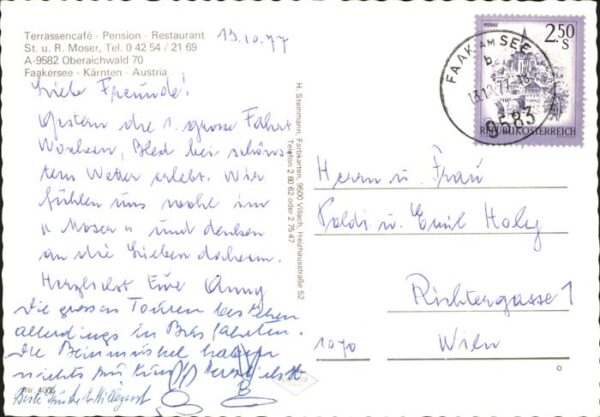 Terrassencafé - Pension - Restaurant
St. u. R. Moser, Tel. 0 42 54 / 21 69
A-9582 Oberaichwald 70
Faakersee - Kärnten - Austria
13.10.77
Liebe Freunde!
Gestern die 1. grosse Fahrt
Bled bei schöns
tem Wetter erlebt. Wir
fühlen uns wohl im
" Moser " und denken
an die Lieben daheim.
Herzlichst Eure Anny
Die grossen Touren bestehen
allerdings in Busfahrten.
Die Beinmuskel haben
nichts zu tun
H. Steinmann, Farbkarten, 9500 Villach, Heizhausstraße 52
Telefon 2 80 62 oder 2 75 47
Nr. 4006
MURAU
2.50
S
REPUBLIK ÖSTERREICH
FAAK AM SEE
13.10.77
9583
Herrn u. Frau
Poldi u. Emil Holy
Richtergasse 1
1070 Wien